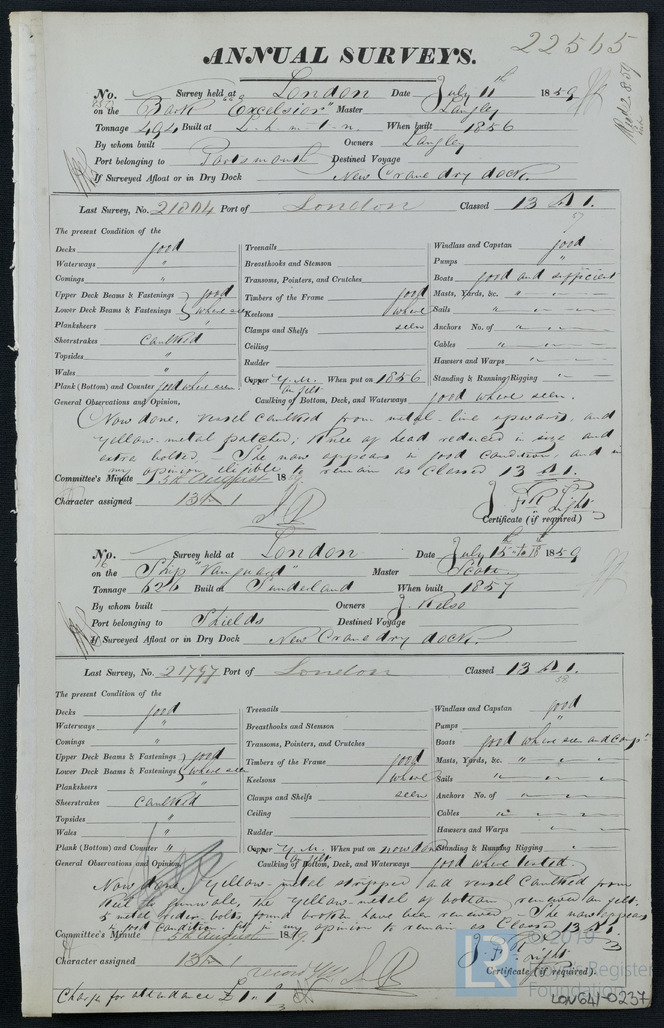 22515
ANNUAL SURVEYS.
No. Survey held at London Date July 11th 1859
on the Bark "Excelsior" Master Langley
Tonnage 494 Built at When built 1856
By whom built Owners Langley
Port belonging to Portsmouth Destined Voyage
If Surveyed Afloat or in Dry Dock New Crane dry dock.
Last Survey, No. 21804 Port of London Classed 13 A 1.
The present Condition of the
Decks good Treenails Windlass and Capstan good
Waterways " Breasthooks and Stemson Pumps "
Comings " Transoms, Pointers, and Crutches Boats good and sufficient
Upper Deck Beams & Fastenings good Timbers of the Frame good Masts, Yards, &c. "
Lower Deck Beams & Fastenings where seen Keelsons where Sails "
Planksheers " Clamps and Shelfs seen Anchors No. of "
Sheerstrakes Caulked Ceiling Cables "
Topsides " Rudder Hawsers and Warps "
Wales " Copper Y.M. on felt When put on 1856 Standing & Running Rigging "
Plank (Bottom) and Counter good where seen Caulking of Bottom, Deck, and Waterways good where seen.
General Observations and Opinion,
Now done, vessel caulked from metal-line upwards, and
yellow-metal patched; Knee of head reduced in size and
extra bolted. - She now appears in good condition, and in
my opinion eligible to remain as Classed 13 A 1.
Committee's Minute 5th August 1859
Character assigned 13 A 1
Certificate (if required)
No. Survey held at London Date July 15th to 18th 1859
on the Ship "Vanguard" Master Scott
Tonnage 626 Built at Sunderland When built 1857
By whom built Owners J. Kelso
Port belonging to Shields Destined Voyage
If Surveyed Afloat or in Dry Dock New Crane dry dock.
Last Survey, No. 21797 Port of London Classed 13 A 1.
58
The present Condition of the
Decks good Treenails Windlass and Capstan good
Waterways " Breasthooks and Stemson Pumps "
Comings " Transoms, Pointers, and Crutches Boats good where seen and comp.
Upper Deck Beams & Fastenings good Timbers of the Frame good Masts, Yards, &c. "
Lower Deck Beams & Fastenings where seen Keelsons where Sails "
Planksheers " Clamps and Shelfs seen Anchors No. of "
Sheerstrakes Caulked Ceiling Cables "
Topsides " Rudder Hawsers and Warps "
Wales " Copper Y.M. on felt When put on now done Standing & Running Rigging
Plank (Bottom) and Counter " Caulking of Bottom, Deck, and Waterways good where tested.
General Observations and Opinion,
Now done, Yellow-metal stripped and vessel caulked from
keel to gunwale, the yellow-metal of bottom renewed on felt.
5 metal rider-bolts found broken have been renewed - She now appears
in good condition, fit in my opinion to remain as Classed 13 A 1.
Committee's Minute 5th August 1859
Character assigned 13 A 1
Certificate (if required).
Charge for attendance £1 " 1
© 2019
Lloyd's Register
Foundation
LON641-0237